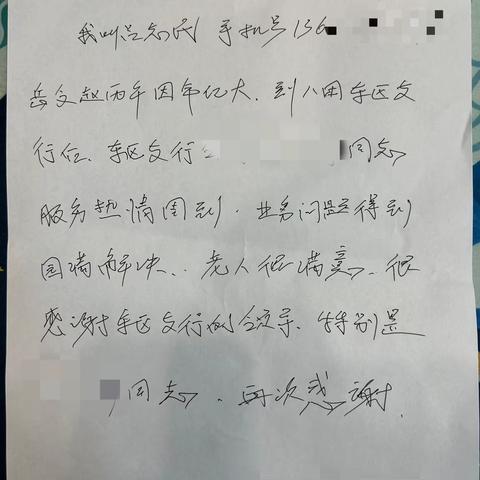 我叫吴志民 手机号136
岳父赵丙午因年亿大、到八里东区交
行位、东区交行 同志
服务热情周到、业务问题得到
圆满解决、老人很满意、很
感谢东区交行的领导、特别是
同志、再次感谢